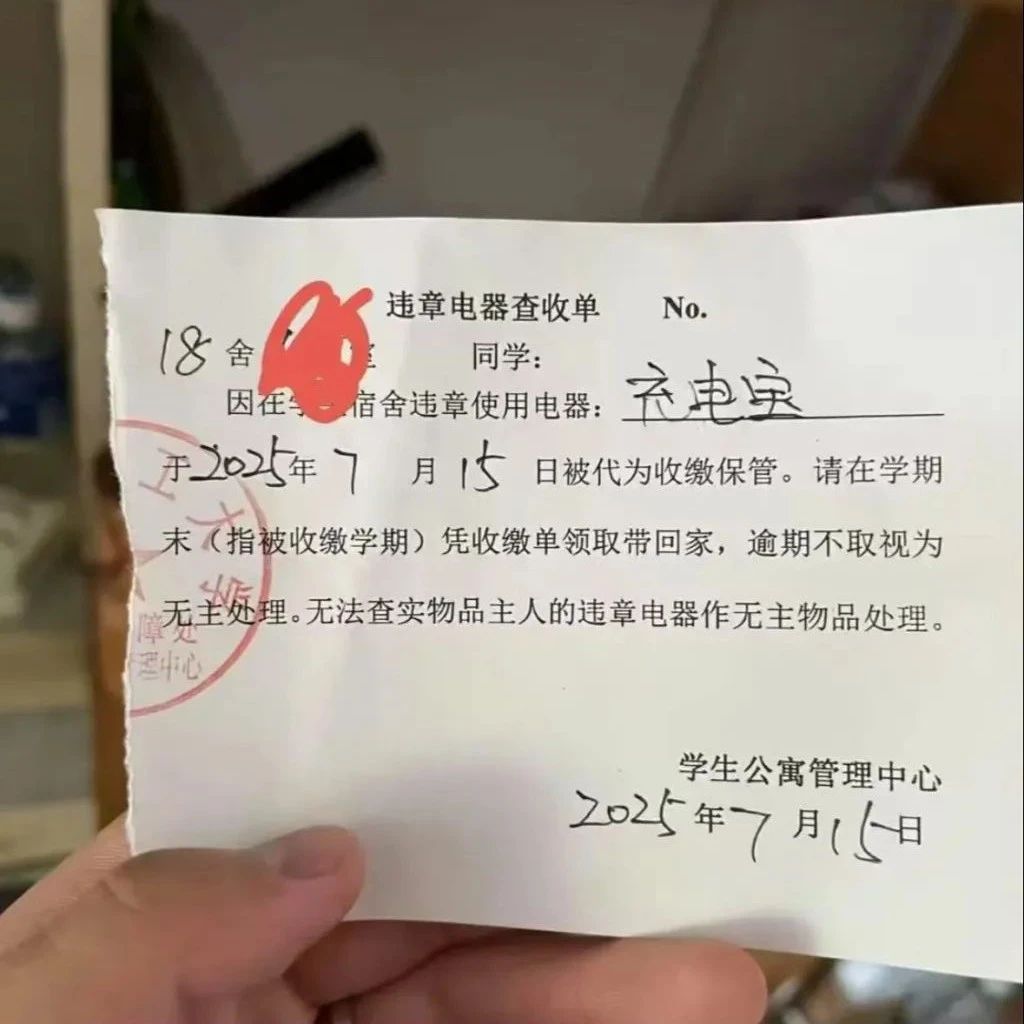 违章电器查收单 No.
18 舍 室 同学:
因在学 宿舍违章使用电器: 充电宝
于2025年 7 月 15 日被代为收缴保管。请在学期
末（指被收缴学期）凭收缴单领取带回家，逾期不取视为
无主处理。无法查实物品主人的违章电器作无主物品处理。
学生公寓管理中心
2025年7月15日
工大学
障处
理中心